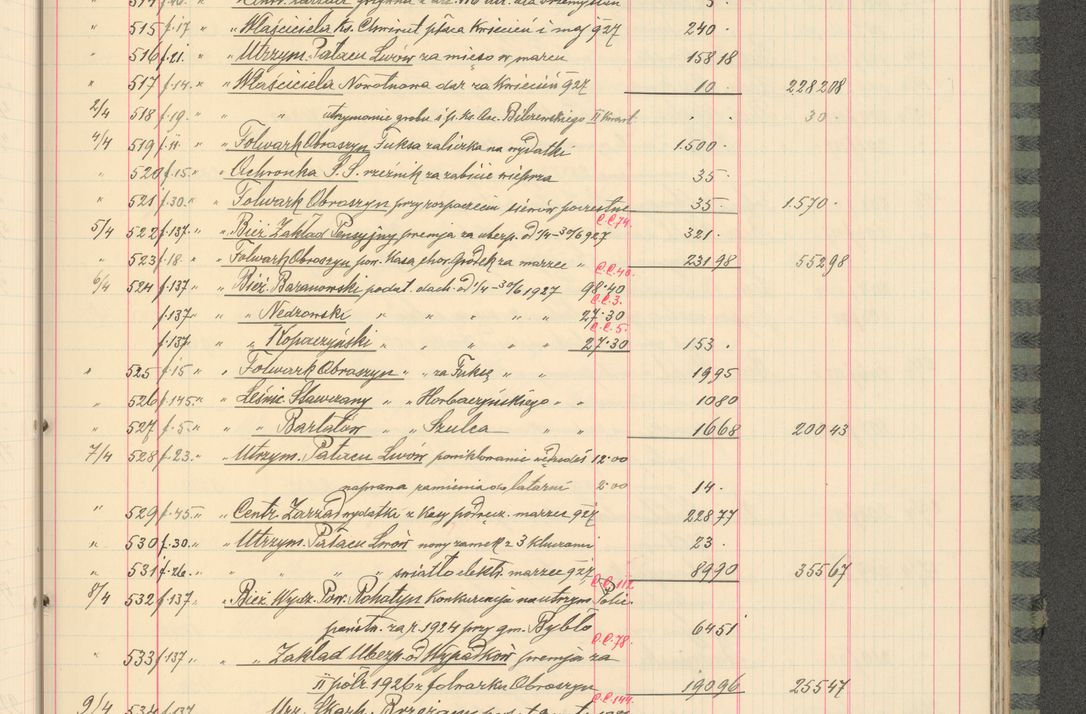 " 515 f.17 " " Właściciela Ks. Chwirut płaca Kwiecień i maj 927 240 ·
" 516 f.21. " " Utrzym. Pałacu Lwów za mięso w marcu 158 18
" 517 f.14. " " Właściciela Nowotnowa dar za Kwiecień 927 10 · 2282 08
2/4 518 f.19. " " utrzymanie grobu ś.p. Ks. Bilczewskiego II Kwart. · · 30 ·
4/4 519 f.11. " " Folwark Obroszyn Fuksa zaliczka na wydatki 1500 ·
" 520 f.15. " " Ochronka S.S. rzeźnik za zabicie wieprza 35 ·
" 521 f.30. " " Folwark Obroszyn przy 35 · 1570 ·
C.C.74.
5/4 522 f.137. " " Bież. Zakład Pensyjny premja za ubezp. od 1/4-30/6 927 321 ·
" 523 f.18. " " Folwark Obroszyn pow. Kasa chor. Gródek za marzec " 231 98 552 98
C.C.40.
6/4 524 f.137 " " Bież. Baranowski podat. doch. od 1/4-30/6 1927 98·40
C.C.3.
f.137 " " Nedzowski " " " " " 27·30
C.C.5.
f.137 " " Kopaczyński " " " " 27·30 153 ·
" 525 f.15 " " Folwark Obroszyn " " za Fuksę " " 19 95
" 526 f.145. " " Leśnic. Stawczany " " Horbaczyńskiego " " 10 80
" 527 f.5. " " " Bartatów " " Szulca " " 16 68 200 43
7/4 528 f.23. " " Utrzym. Pałacu Lwów poniklowanie 12·00
naprawa ramienia do latarni 2·00 14 ·
" 529 f.45 " " Centr. Zarząd wydatki z Kasy podręcz. marzec 927 228 77
" 530 f.30. " " Utrzym. Pałacu Lwów nowy zamek z 3 kluczami 23 ·
" 531 f.26. " " " " światło elektr. marzec 927 89 90 355 67
C.C.112.
8/4 532 f.137 " " Bież. Wydz. Pow. Rohatyn Konkurencja na utrzym. Polic.
państw. za r. 1924 przy gm. Bybło 64 51
C.C.78.
" 533 f.137 " " " Zakład Ubezp. od Wypadków premja za
II półr. 1926 z folwarku Obroszyn 190 96 255 47
C.C.144.
9/4 534 f.137